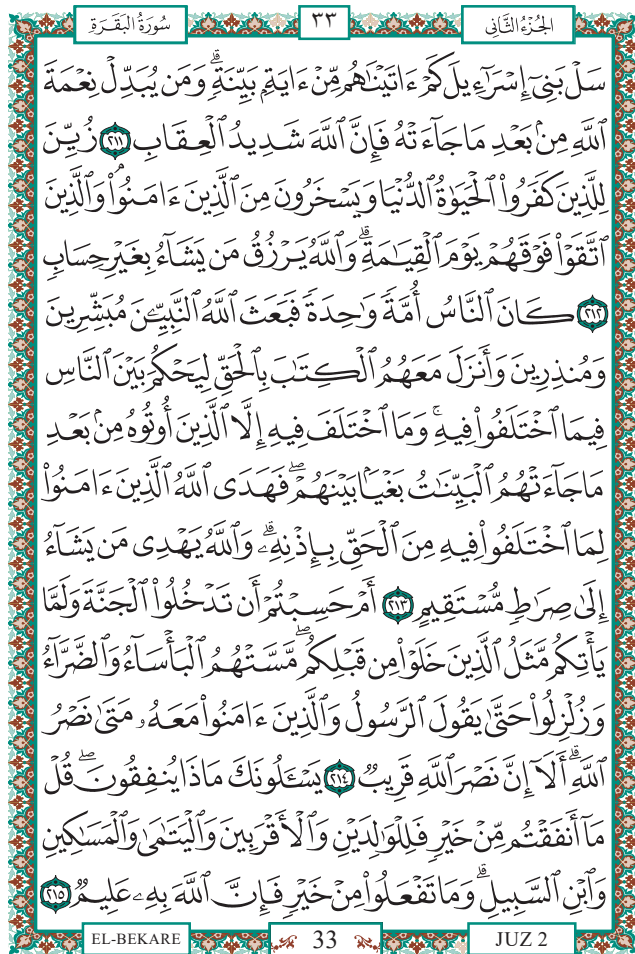 سُورَةُ الْبَقَرَةِ ٣٣ الجُزْءُ الثَّانِي
سَلْ بَنِىٓ إِسْرَٰٓءِيلَ كَمْ ءَاتَيْنَٰهُم مِّنْ ءَايَةِۭ بَيِّنَةٍۗ وَمَن يُبَدِّلْ نِعْمَةَ
ٱللَّهِ مِنۢ بَعْدِ مَا جَآءَتْهُ فَإِنَّ ٱللَّهَ شَدِيدُ ٱلْعِقَابِ ٢١١ زُيِّنَ
لِلَّذِينَ كَفَرُوا۟ ٱلْحَيَوٰةُ ٱلدُّنْيَا وَيَسْخَرُونَ مِنَ ٱلَّذِينَ ءَامَنُوا۟ۘ وَٱلَّذِينَ
ٱتَّقَوْا۟ فَوْقَهُمْ يَوْمَ ٱلْقِيَٰمَةِۗ وَٱللَّهُ يَرْزُقُ مَن يَشَآءُ بِغَيْرِ حِسَابٍ
٢١٢ كَانَ ٱلنَّاسُ أُمَّةً وَٰحِدَةً فَبَعَثَ ٱللَّهُ ٱلنَّبِيِّۦنَ مُبَشِّرِينَ
وَمُنذِرِينَ وَأَنزَلَ مَعَهُمُ ٱلْكِتَٰبَ بِٱلْحَقِّ لِيَحْكُمَ بَيْنَ ٱلنَّاسِ
فِيمَا ٱخْتَلَفُوا۟ فِيهِۚ وَمَا ٱخْتَلَفَ فِيهِ إِلَّا ٱلَّذِينَ أُوتُوهُ مِنۢ بَعْدِ
مَا جَآءَتْهُمُ ٱلْبَيِّنَٰتُ بَغْيًۢا بَيْنَهُمْۖ فَهَدَى ٱللَّهُ ٱلَّذِينَ ءَامَنُوا۟
لِمَا ٱخْتَلَفُوا۟ فِيهِ مِنَ ٱلْحَقِّ بِإِذْنِهِۦۗ وَٱللَّهُ يَهْدِى مَن يَشَآءُ
إِلَىٰ صِرَٰطٍ مُّسْتَقِيمٍ ٢١٣ أَمْ حَسِبْتُمْ أَن تَدْخُلُوا۟ ٱلْجَنَّةَ وَلَمَّا
يَأْتِكُم مَّثَلُ ٱلَّذِينَ خَلَوْا۟ مِن قَبْلِكُمۖ مَّسَّتْهُمُ ٱلْبَأْسَآءُ وَٱلضَّرَّآءُ
وَزُلْزِلُوا۟ حَتَّىٰ يَقُولَ ٱلرَّسُولُ وَٱلَّذِينَ ءَامَنُوا۟ مَعَهُۥ مَتَىٰ نَصْرُ
ٱللَّهِۗ أَلَآ إِنَّ نَصْرَ ٱللَّهِ قَرِيبٌ ٢١٤ يَسْـَٔلُونَكَ مَاذَا يُنفِقُونَۖ قُلْ
مَآ أَنفَقْتُم مِّنْ خَيْرٍ فَلِلْوَٰلِدَيْنِ وَٱلْأَقْرَبِينَ وَٱلْيَتَٰمَىٰ وَٱلْمَسَٰكِينِ
وَٱبْنِ ٱلسَّبِيلِۗ وَمَا تَفْعَلُوا۟ مِنْ خَيْرٍ فَإِنَّ ٱللَّهَ بِهِۦ عَلِيمٌ ٢١٥
EL-BEKARE 33 JUZ 2